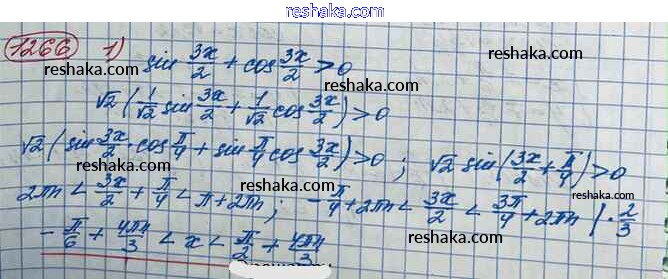 reshaka.com
1266 1) sin 3x/2 + cos 3x/2 > 0
reshaka.com
reshaka.com
√2 (1/√2 sin 3x/2 + 1/√2 cos 3x/2) > 0
reshaka.com
√2 (sin 3x/2 · cos π/4 + sin π/4 cos 3x/2) > 0 ; √2 sin (3x/2 + π/4) > 0
reshaka.com
reshaka.com
2πn < 3x/2 + π/4 < π + 2πn ; -π/4 + 2πn < 3x/2 < 3π/4 + 2πn | · 2/3
reshaka.com
reshaka.com
-π/6 + 4πn/3 < x < π/2 + 4πn/3